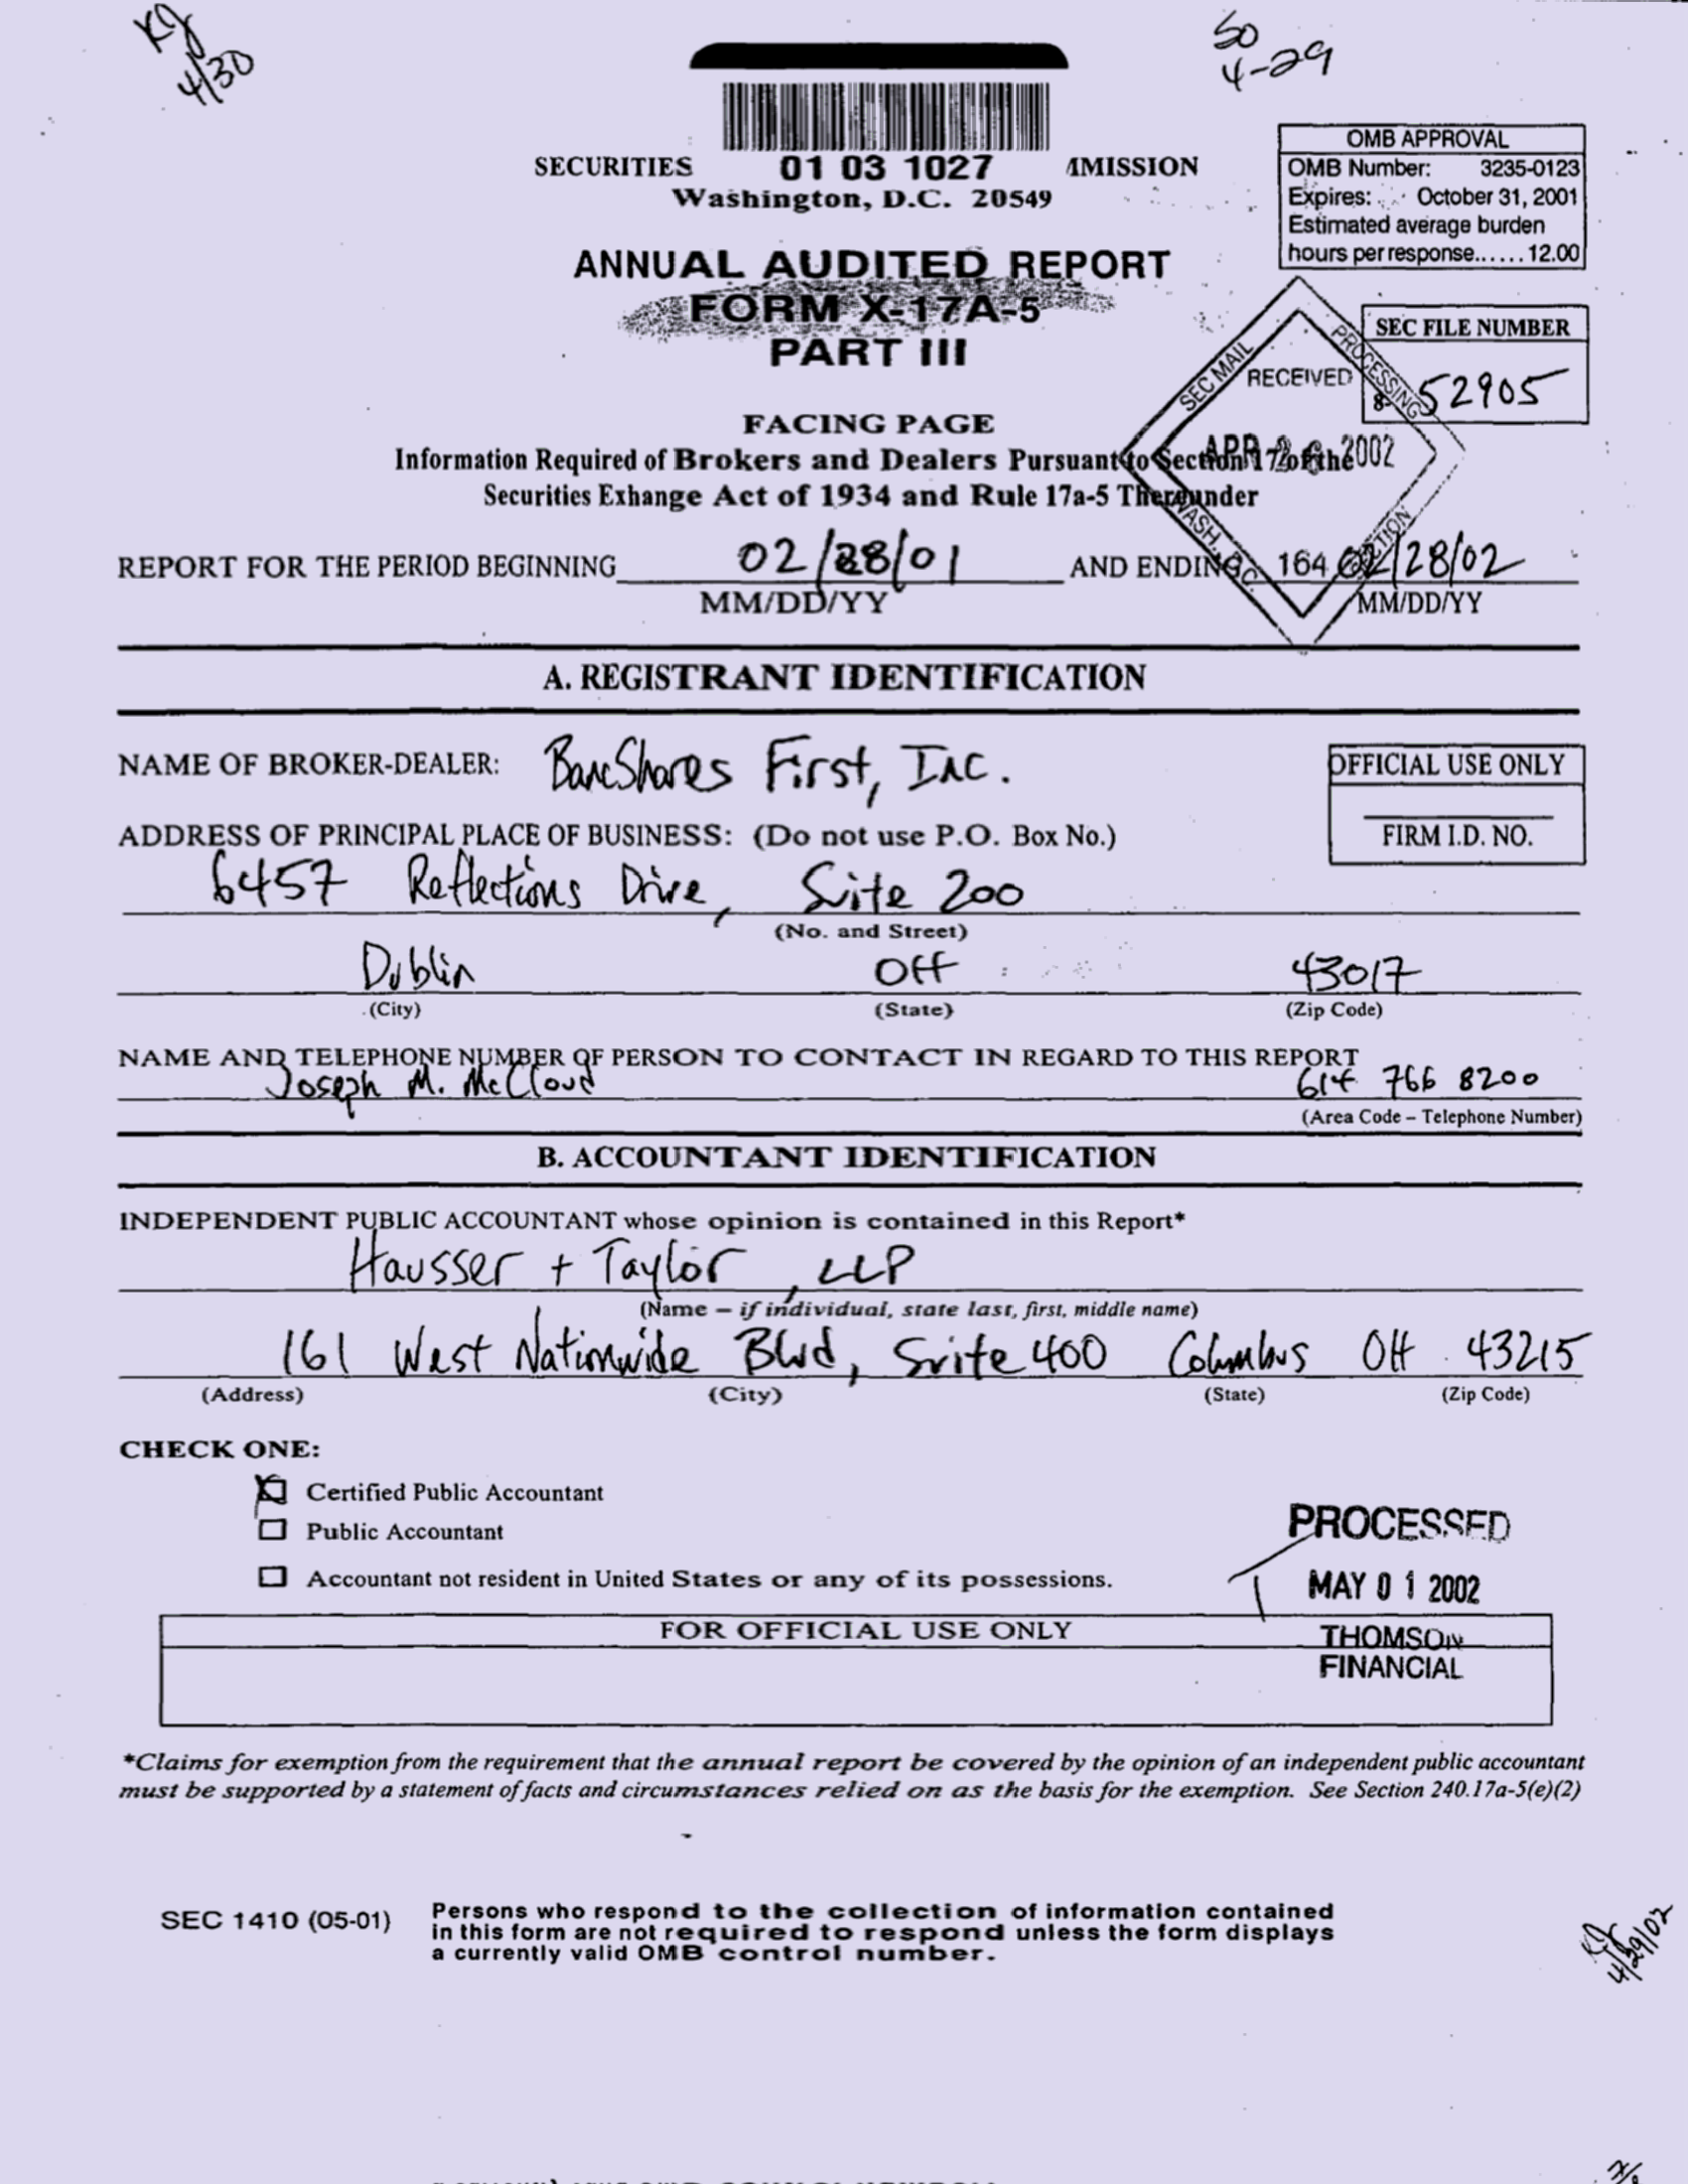 KJ
4/30
SO
4-29
SECURITIES 01 03 1027 MMISSION
Washington, D.C. 20549
OMB APPROVAL
OMB Number: 3235-0123
Expires: October 31, 2001
Estimated average burden
hours per response...... 12.00
ANNUAL AUDITED REPORT
FORM X-17A-5
PART III
SEC FILE NUMBER
8- 52905
SEC MAIL PROCESSING
RECEIVED
APR 26 2002
WASH. D.C. 164 SECTION
FACING PAGE
Information Required of Brokers and Dealers Pursuant to Section 17 of the
Securities Exhange Act of 1934 and Rule 17a-5 Thereunder
REPORT FOR THE PERIOD BEGINNING 02/28/01 AND ENDING 02/28/02
MM/DD/YY MM/DD/YY
A. REGISTRANT IDENTIFICATION
NAME OF BROKER-DEALER: BancShares First, Inc.
OFFICIAL USE ONLY
FIRM I.D. NO.
ADDRESS OF PRINCIPAL PLACE OF BUSINESS: (Do not use P.O. Box No.)
6457 Reflections Drive, Suite 200
(No. and Street)
Dublin OH 43017
(City) (State) (Zip Code)
NAME AND TELEPHONE NUMBER OF PERSON TO CONTACT IN REGARD TO THIS REPORT
Joseph M. McCloud 614 766 8200
(Area Code – Telephone Number)
B. ACCOUNTANT IDENTIFICATION
INDEPENDENT PUBLIC ACCOUNTANT whose opinion is contained in this Report*
Hausser + Taylor, LLP
(Name – if individual, state last, first, middle name)
161 West Nationwide Blvd, Suite 400 Columbus OH 43215
(Address) (City) (State) (Zip Code)
CHECK ONE:
Certified Public Accountant
Public Accountant
Accountant not resident in United States or any of its possessions.
PROCESSED
MAY 0 1 2002
THOMSON
FINANCIAL
FOR OFFICIAL USE ONLY
*Claims for exemption from the requirement that the annual report be covered by the opinion of an independent public accountant
must be supported by a statement of facts and circumstances relied on as the basis for the exemption. See Section 240.17a-5(e)(2)
SEC 1410 (05-01)
Persons who respond to the collection of information contained
in this form are not required to respond unless the form displays
a currently valid OMB control number.
KJ
4/29/02